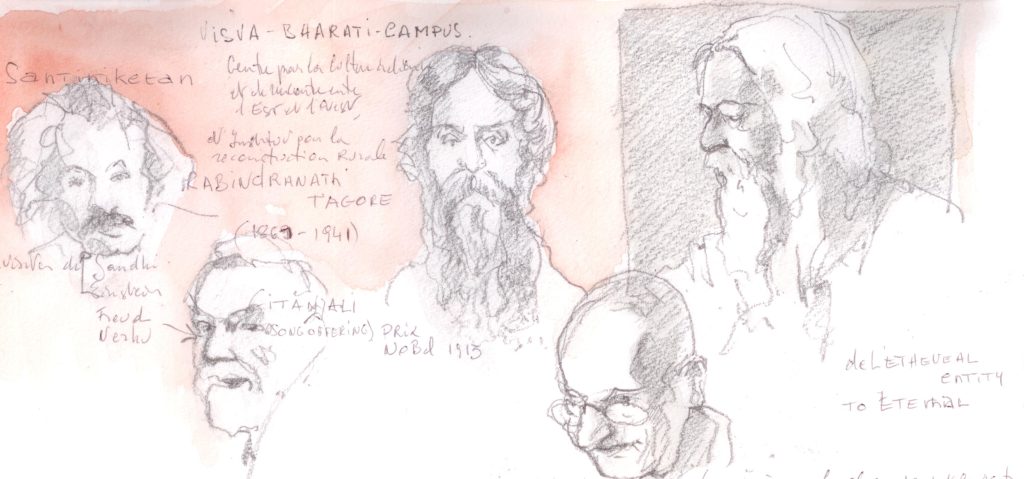 VISVA - BHARATI - CAMPUS.
Santiniketan
Centre pour la Culture
et de rencontre entre
l'Est et l'Ouest,
d'Institut pour la
reconstruction Rurale
RABINDRANATH
TAGORE
(1860 - 1941)
visites de Gandhi
Einstein
Freud
Nehru
GITANJALI
(SONG OFFERING) PRIX
NOBEL 1913
de L'ETHEVEAL
ENTITY
TO ETERNAL